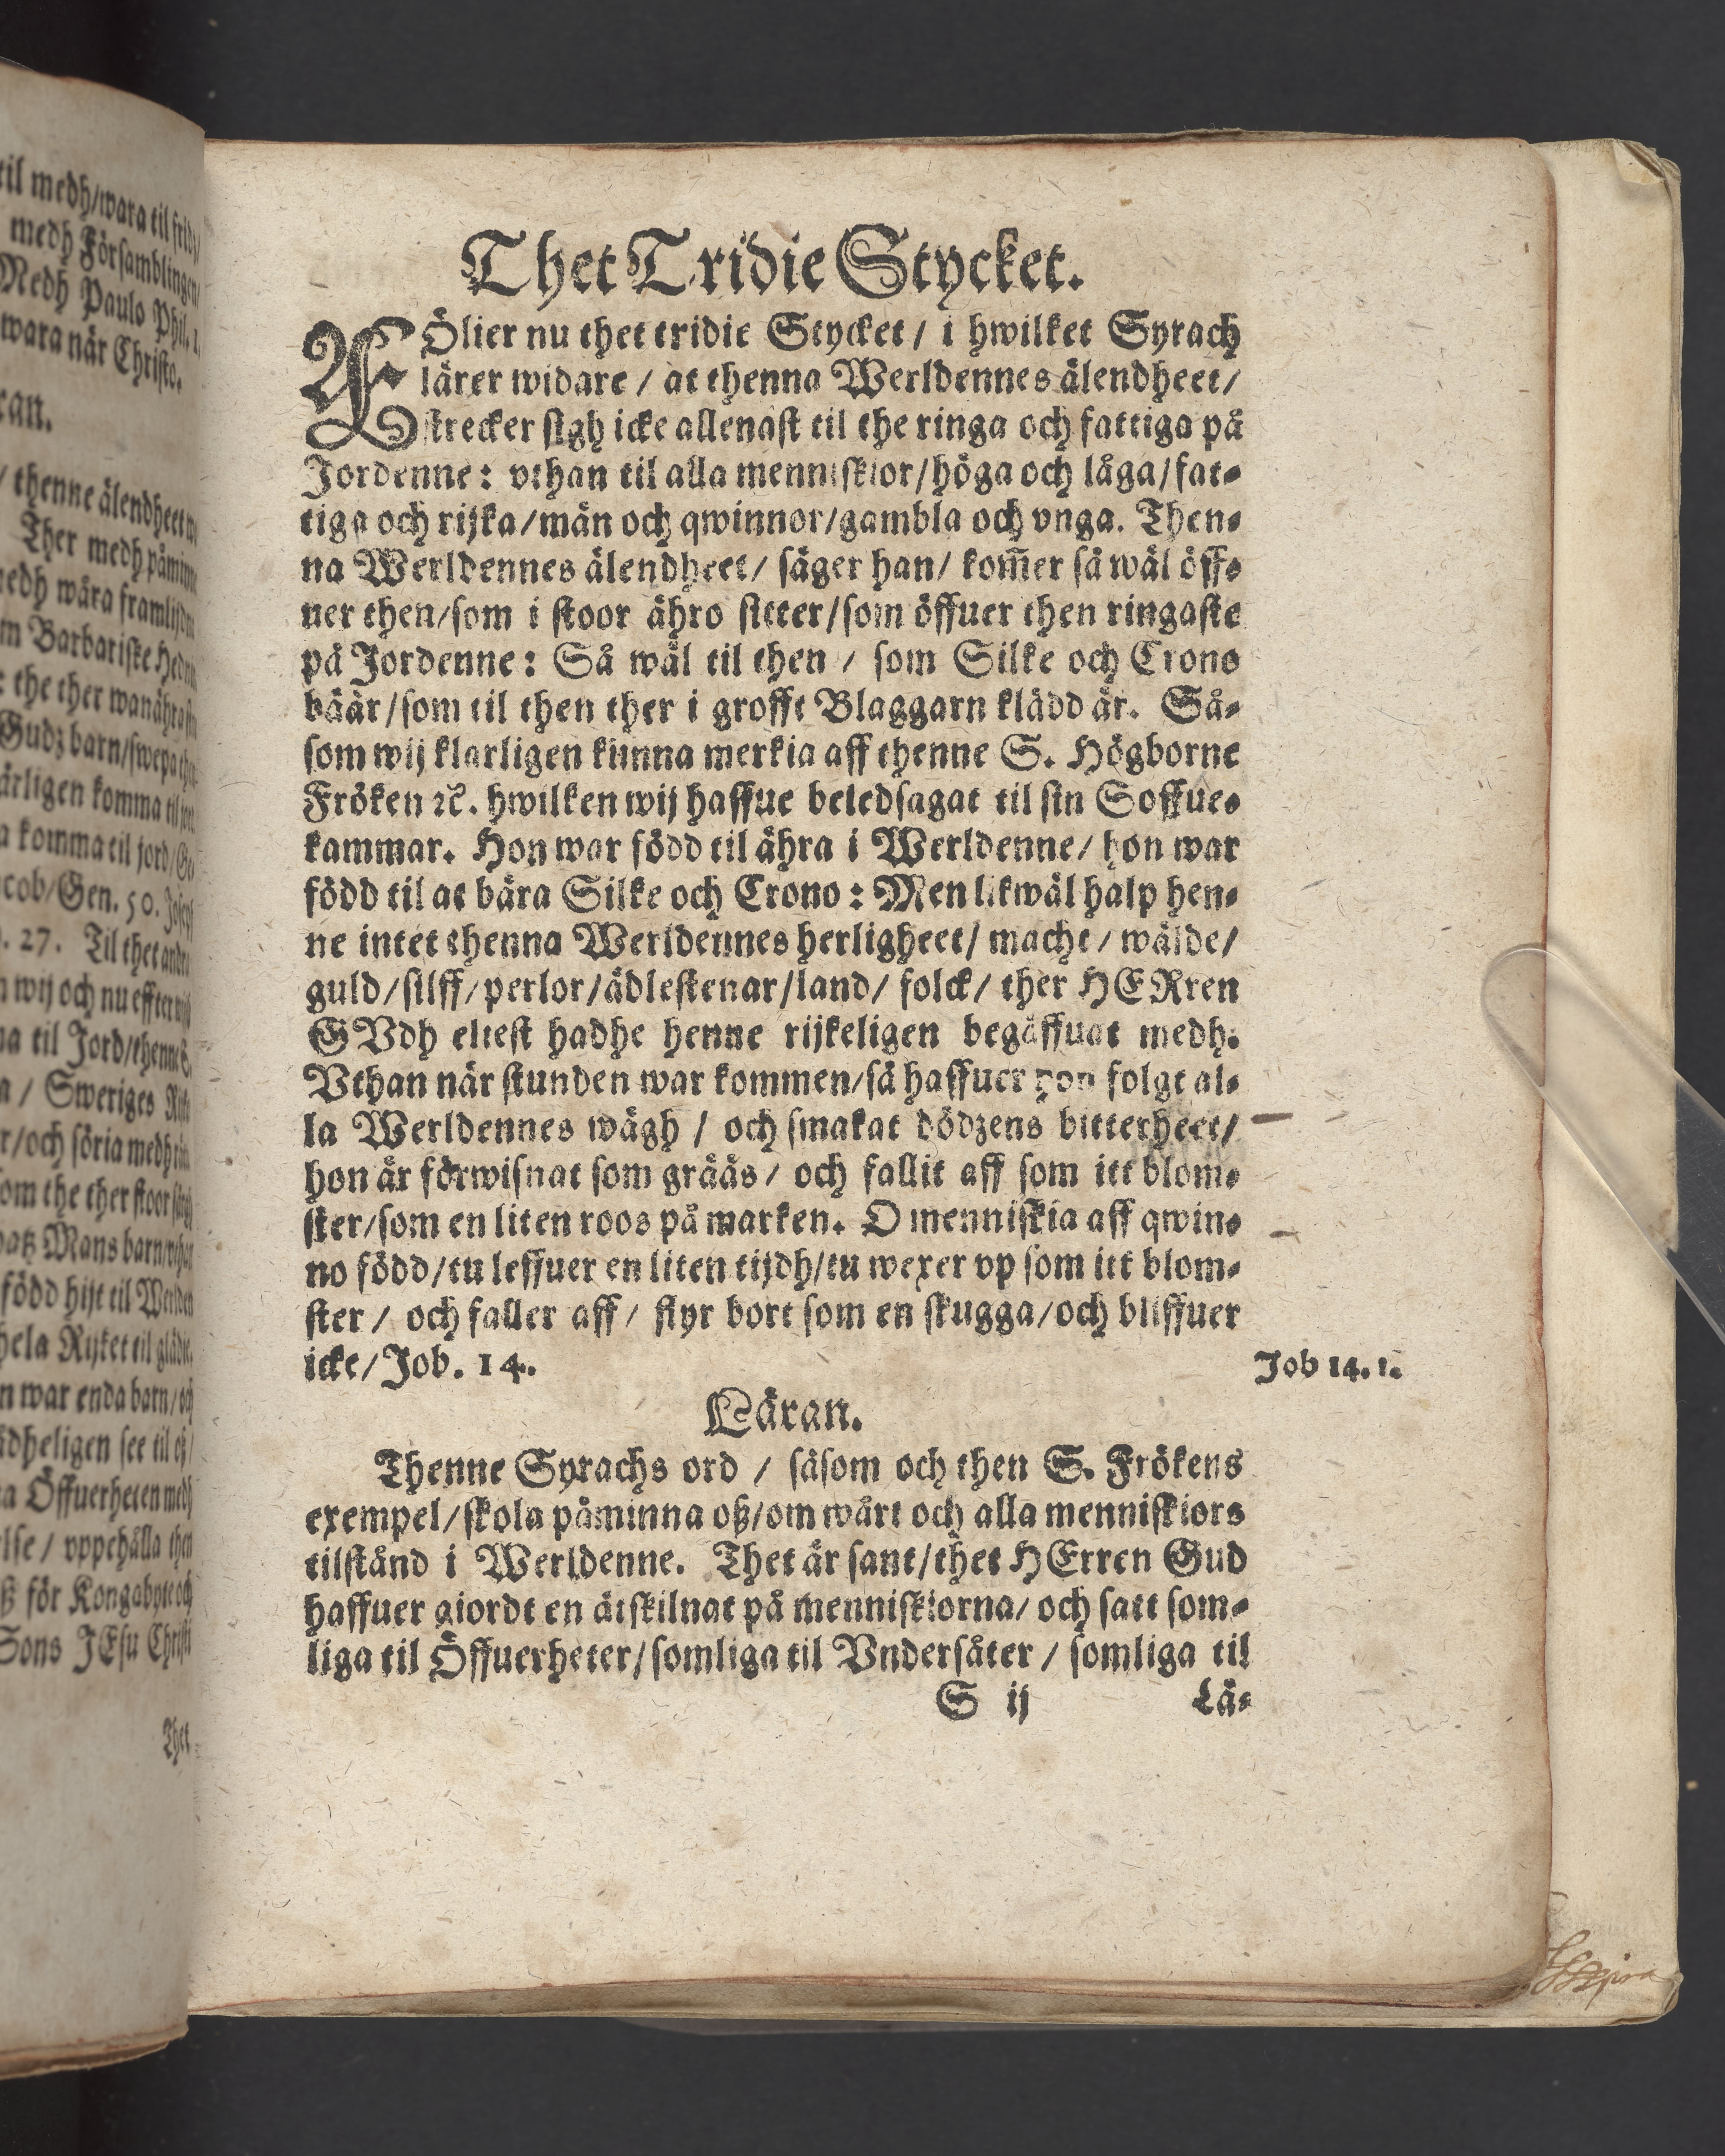 til medh/wara til fridz/
medh Församblingen/
Medh Paulo Phil. 1.
wara när Christo.
ran.
/ thenne älendheet
Ther medh påminne
medh wåra framlijdne
m Barbariske Hedn
: the ther wanährasti
Gudz barn/swepa
ärligen komma til
a komma til jord/Ge
cob/Gen. 50. Joseph
. 27. Til thet andra
wij och nu effter
na til Jord/thenne S.
a / Sweriges Rike
r/och söria medh
om the ther stoor
Mans barn
född hijt til Werlden
hela Rijket til glädie.
n war enda barn/och
dheligen see til
a Öffuerheten medh
else / vppehålla then
ß för Kongabyte och
Sons JEsu Christi
Thet
Thet Tridie Stycket.
FÖlier nu thet tridie Stycket / i hwilket Syrach
lärer widare / at thenna Werldennes älendheet/
strecker sigh icke allenast til the ringa och fattiga på
Jordenne: vthan til alla menniskior/höga och låga/fat-
tiga och rijka/män och qwinnor/gambla och vnga. Then-
na Werldennes älendheet/ säger han/ kom̃er så wäl öff-
uer then/som i stoor ähro sitter/som öffuer then ringaste
på Jordenne: Så wäl til then / som Silke och Crono
bäär/som til then ther i grofft Blaggarn klädd är. Så-
som wij klarligen kunna merkia aff thenne S. Högborne
Fröken ꝛc. hwilken wij haffue beledsagat til sin Soffue-
kammar. Hon war född til ähra i Werldenne/ hon war
född til at bära Silke och Crono: Men likwäl halp hen-
ne intet thenna Werldennes herligheet/ macht / wälde/
guld/silff/perlor/ädlestenar/land/ folck/ ther HERren
GVdh eliest hadhe henne rijkeligen begåffuat medh.
Vthan när stunden war kommen/så haffuer hon folgt al-
la Werldennes wägh / och smakat dödzens bitterheet/
hon är förwisnat som grääs / och fallit aff som itt blom-
ster/som en liten roos på marken. O menniskia aff qwin-
no född/tu leffuer en liten tijdh/tu wexer vp som itt blom-
ster / och faller aff / flyr bort som en skugga/och bliffuer
icke/Job. 14.
Job 14. 1.
Läran.
Thenne Syrachs ord / såsom och then S. Frökens
exempel/skola påminna oß/om wårt och alla menniskiors
tilstånd i Werldenne. Thet är sant/thet HErren Gud
haffuer giordt en åtskilnat på menniskiorna/ och satt som-
liga til Öffuerheter/somliga til Vndersåter / somliga til
S ij
Lä-